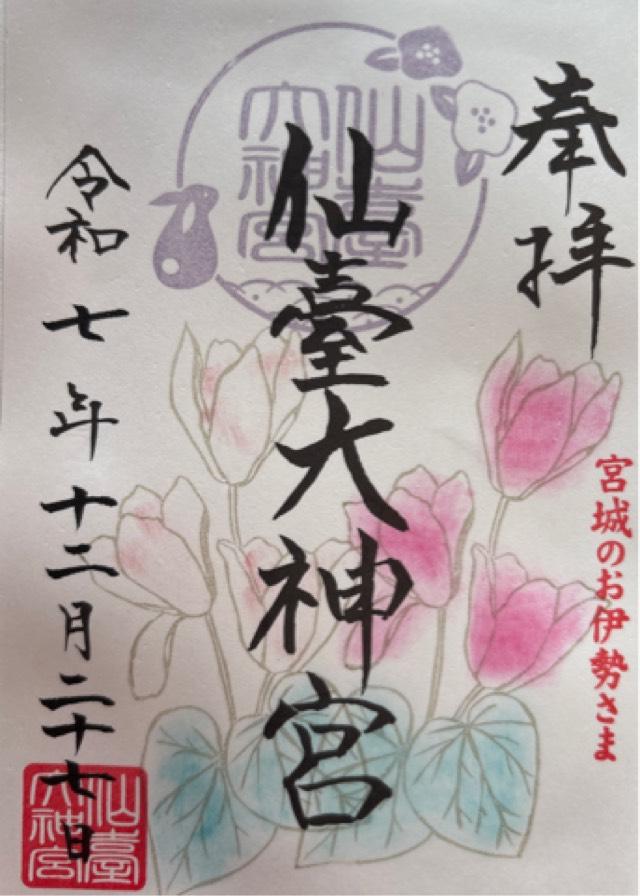 奉拝
宮城のお伊勢さま
仙臺大神宮
仙臺
大神宮
令和七年十二月二十七日
仙臺
大神宮